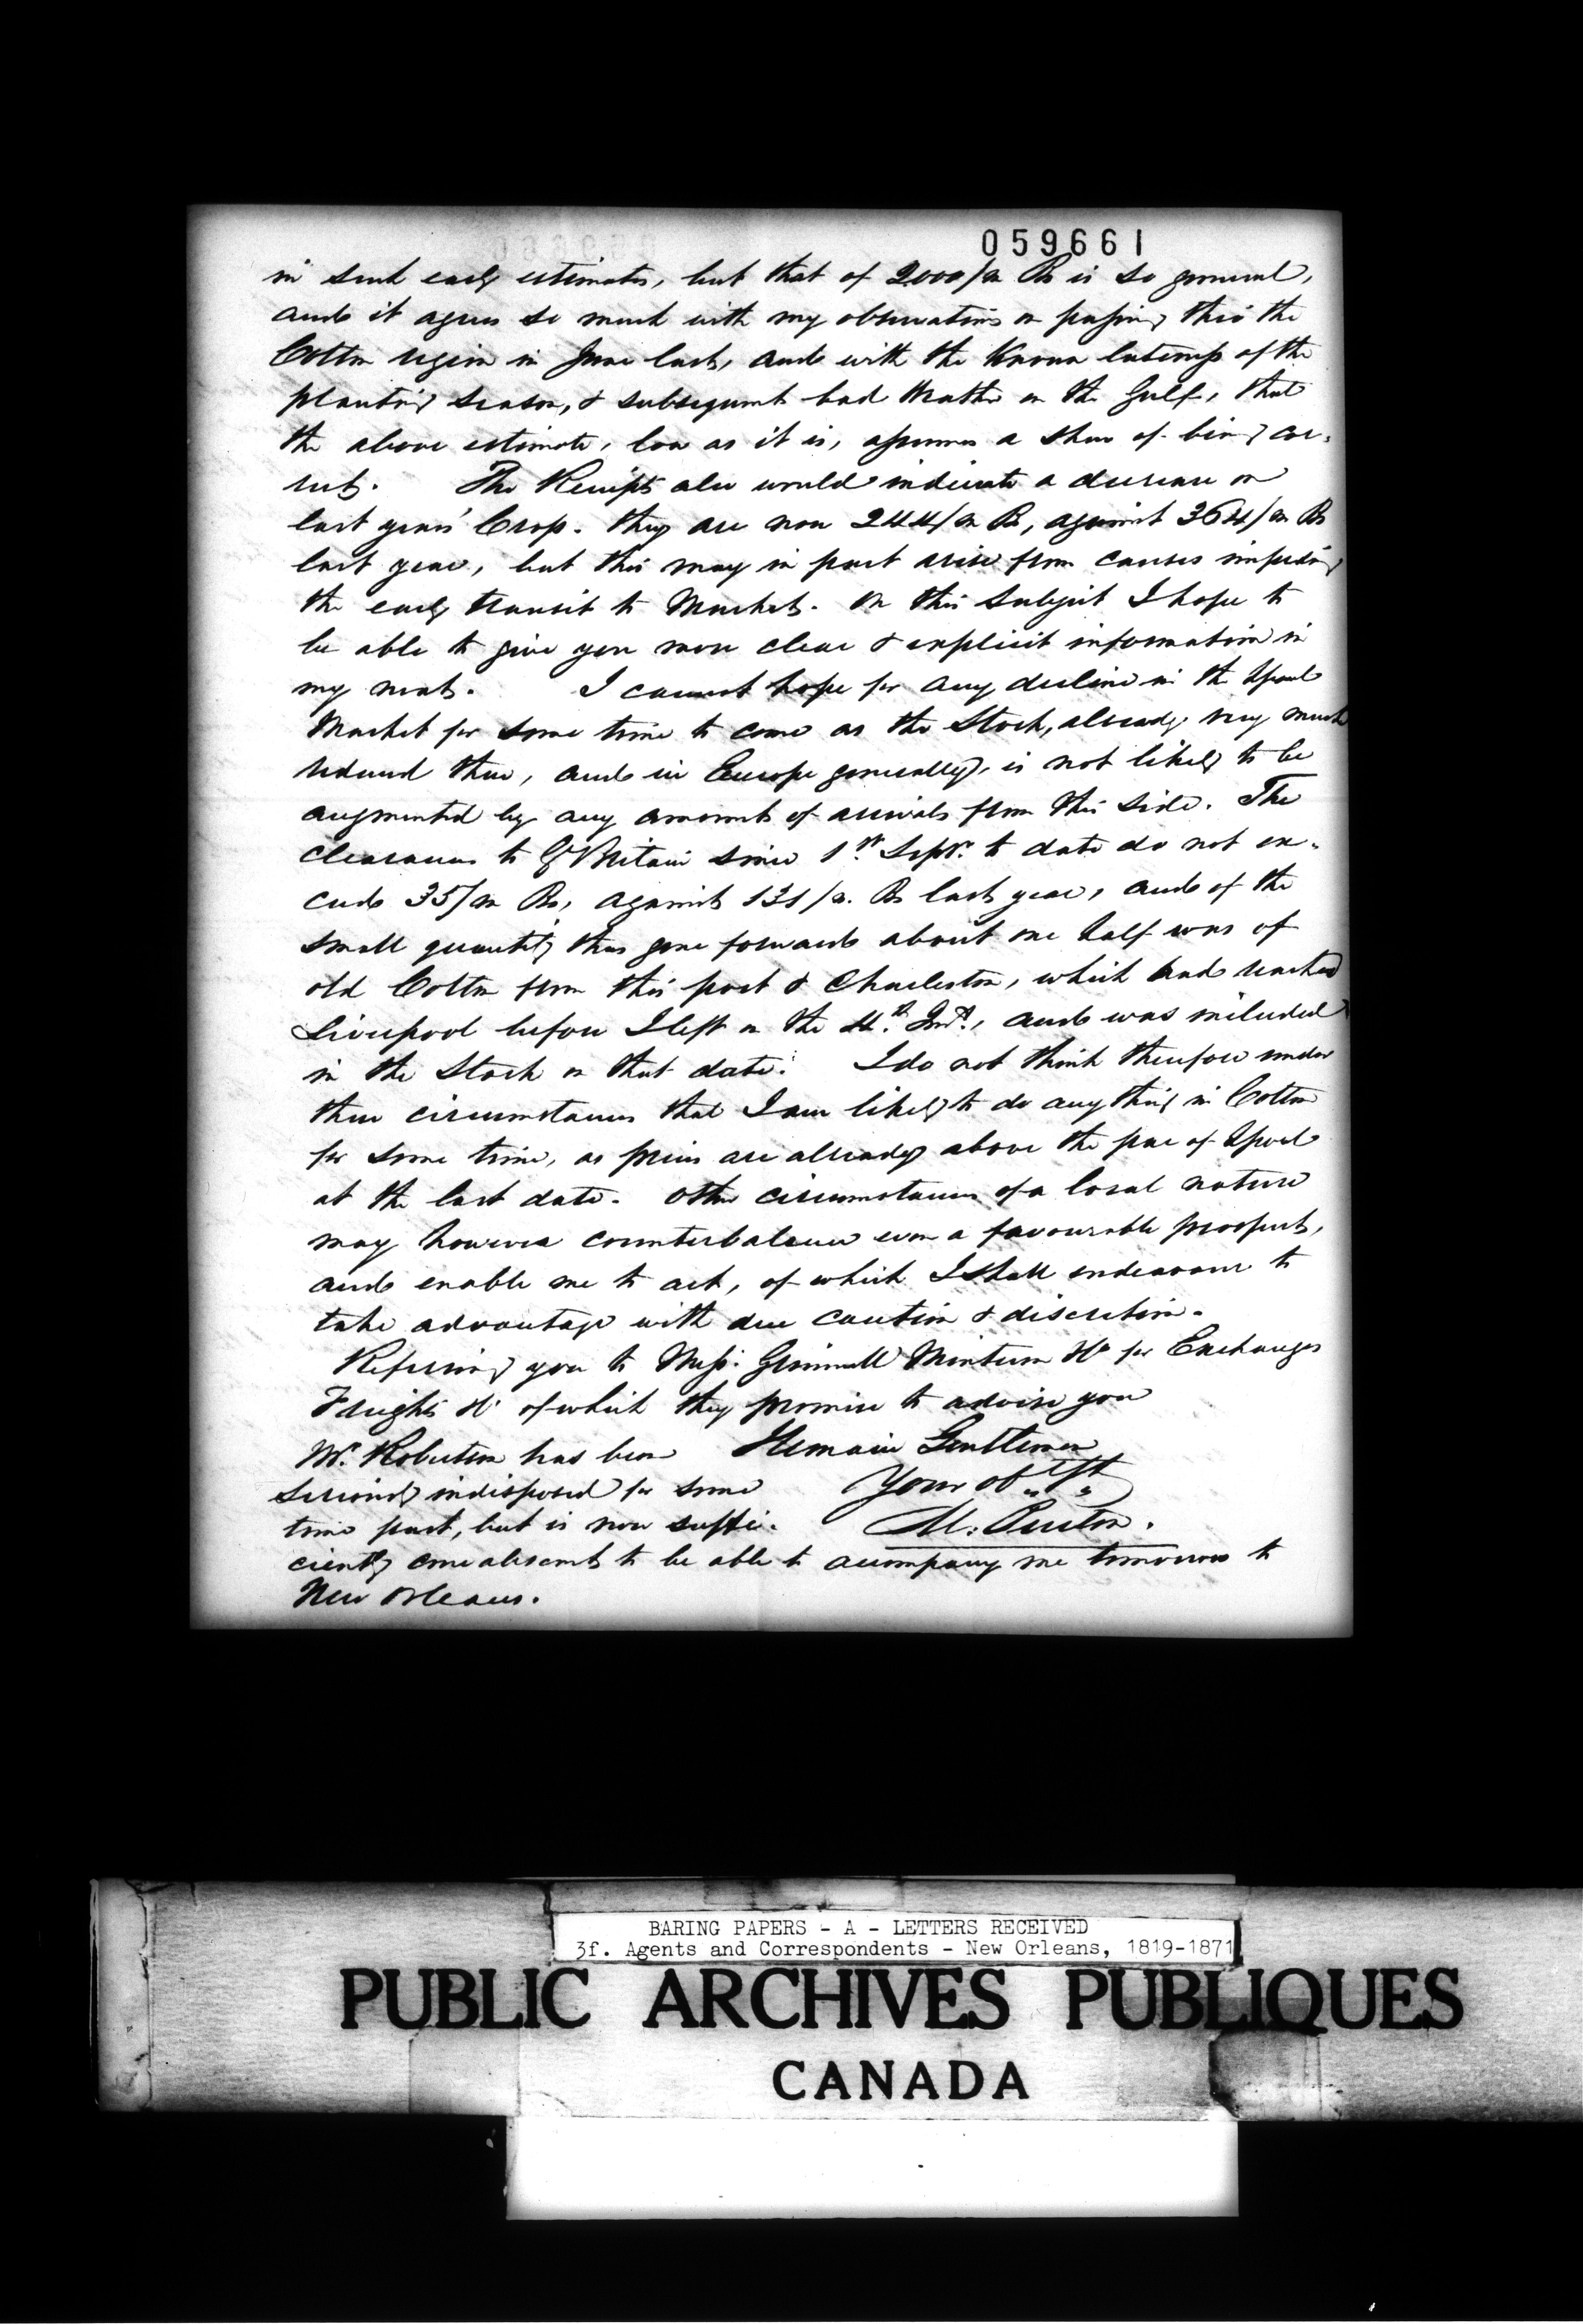 059661
in such early estimates, but that of 2000/m Bs is so general,
and it agrees so much with my observations on passing thro the
Cotton region in June last, and with the known lateness of the
planting season, & subsequent bad weather on the Gulf, that
the above estimate, low as it is, assumes a shew of being cor-
rect. The Receipts also would indicate a decrease on
last years' Crop. they are now 244/m Bs, against 364/m Bs
last year, but this may in part arise from causes impeding
the early transit to Market. On this subject I hope to
be able to give you more clear & explicit information in
my next. I cannot hope for any decline in the Lpool
Market for some time to come as the Stock, already very much
reduced there, and in Europe generally, is not likely to be
augmented by any amount of arrivals from this side. The
clearances to Gt Britain since 1st Sepr. to date do not ex-
ceed 35/m Bs, against 131/m. Bs last year, and of the
small quantity thus gone forward about one half was of
old Cotton from this port & Charleston, which had reached
Liverpool before I left on the 4th. Inst., and was included
in the Stock on that date. I do not think therefore under
these circumstances that I am likely to do any thing in Cotton
for some time, as prices are already above the par of Lpool
at the last date. Other circumstances of a local nature
may however counterbalance even a favourable prospect,
and enable me to act, of which I shall endeavour to
take advantage with due caution & discretion.
Referring you to Messrs. Grinnell Minturn & Co for Exchanges
Freights &c of which they promise to advise you
Mr. Robertson has been I remain Gentlemen
seriously indisposed for some Your ob. St
time past, but is now suffi-
ciently convalescent to be able to accompany me tomorrow to
New Orleans.
BARING PAPERS - A - LETTERS RECEIVED
3f. Agents and Correspondents - New Orleans, 1819-1871
PUBLIC ARCHIVES PUBLIQUES
CANADA